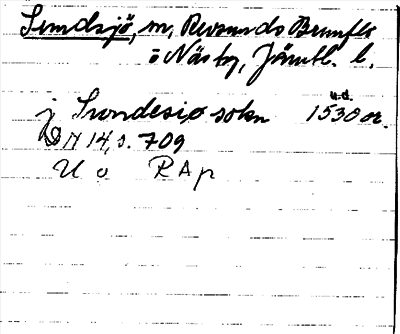 Sundsjö, sn, Revsunds Brunflo
o Näs tg, Jämtl. l.
u.d.
j Swndesiø sokn 1530 or.
DN 14, s. 709
U o RAp